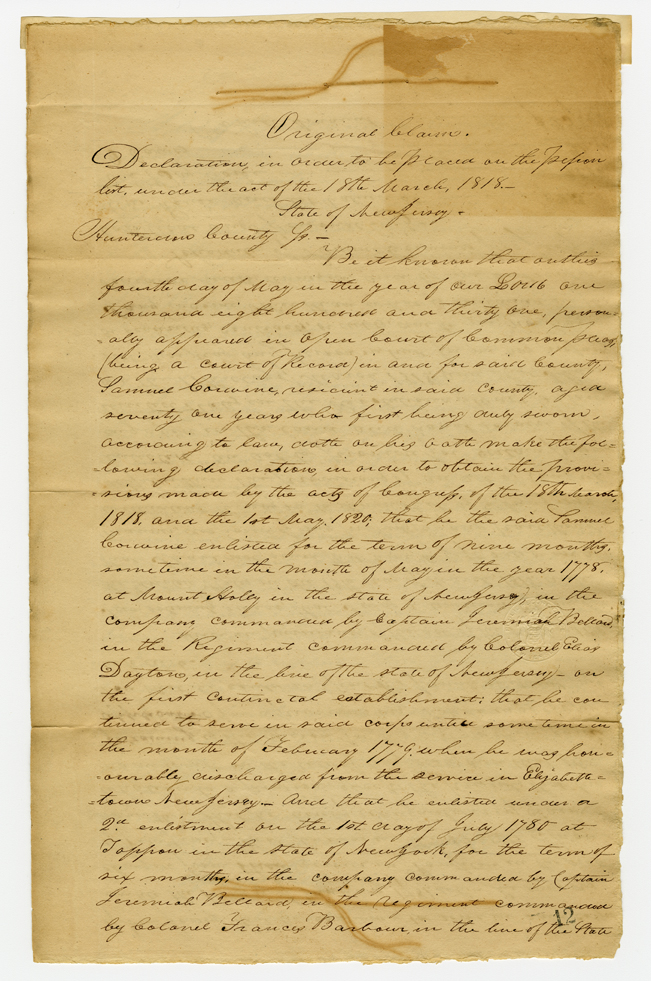 Original Claim.
Declaration, in order to be placed on the Pension
list, under the act of the 18th March, 1818.—
State of New Jersey.
County Ss.—
Be it known that on this
fourth day of May in the year of our Lord one
thousand eight hundred and thirty one, person-
-ally appeared in open Court of Common pleas,
(being a court of Record) in and for said County,
Samuel Corwine, resident in said county, aged
seventy one years who first being duly sworn,
according to law, doth on his oath make the fol=
=lowing declaration, in order to obtain the provi=
=sions made by the acts of Congress, of the 18th March,
1818, and the 1st May, 1820; that he the said Samuel
Corwine enlisted for the term of nine months,
sometime in the month of May in the year 1778,
at Mount Holly in the state of New Jersey, in the
company commanded by Captain Jeremiah Bellard,
in the Regiment commanded by Colonel Elias
Dayton, in the line of the state of New Jersey - on
the first continetal establishment; that he con
tinued to serve in said corps untill sometime in
the month of February 1779, when he was hon=
=ourably discharged from the service in Elizabeth=
=town New Jersey.— And that he enlisted under a
2.d enlistment on the 1st day of July 1780 at
Tappon in the state of New York, for the term of
six months, in the company commanded by Captain
Jeremiah Bellard, in the regiment commanded
by Colonel Francis Barbour, in the line of the State
12